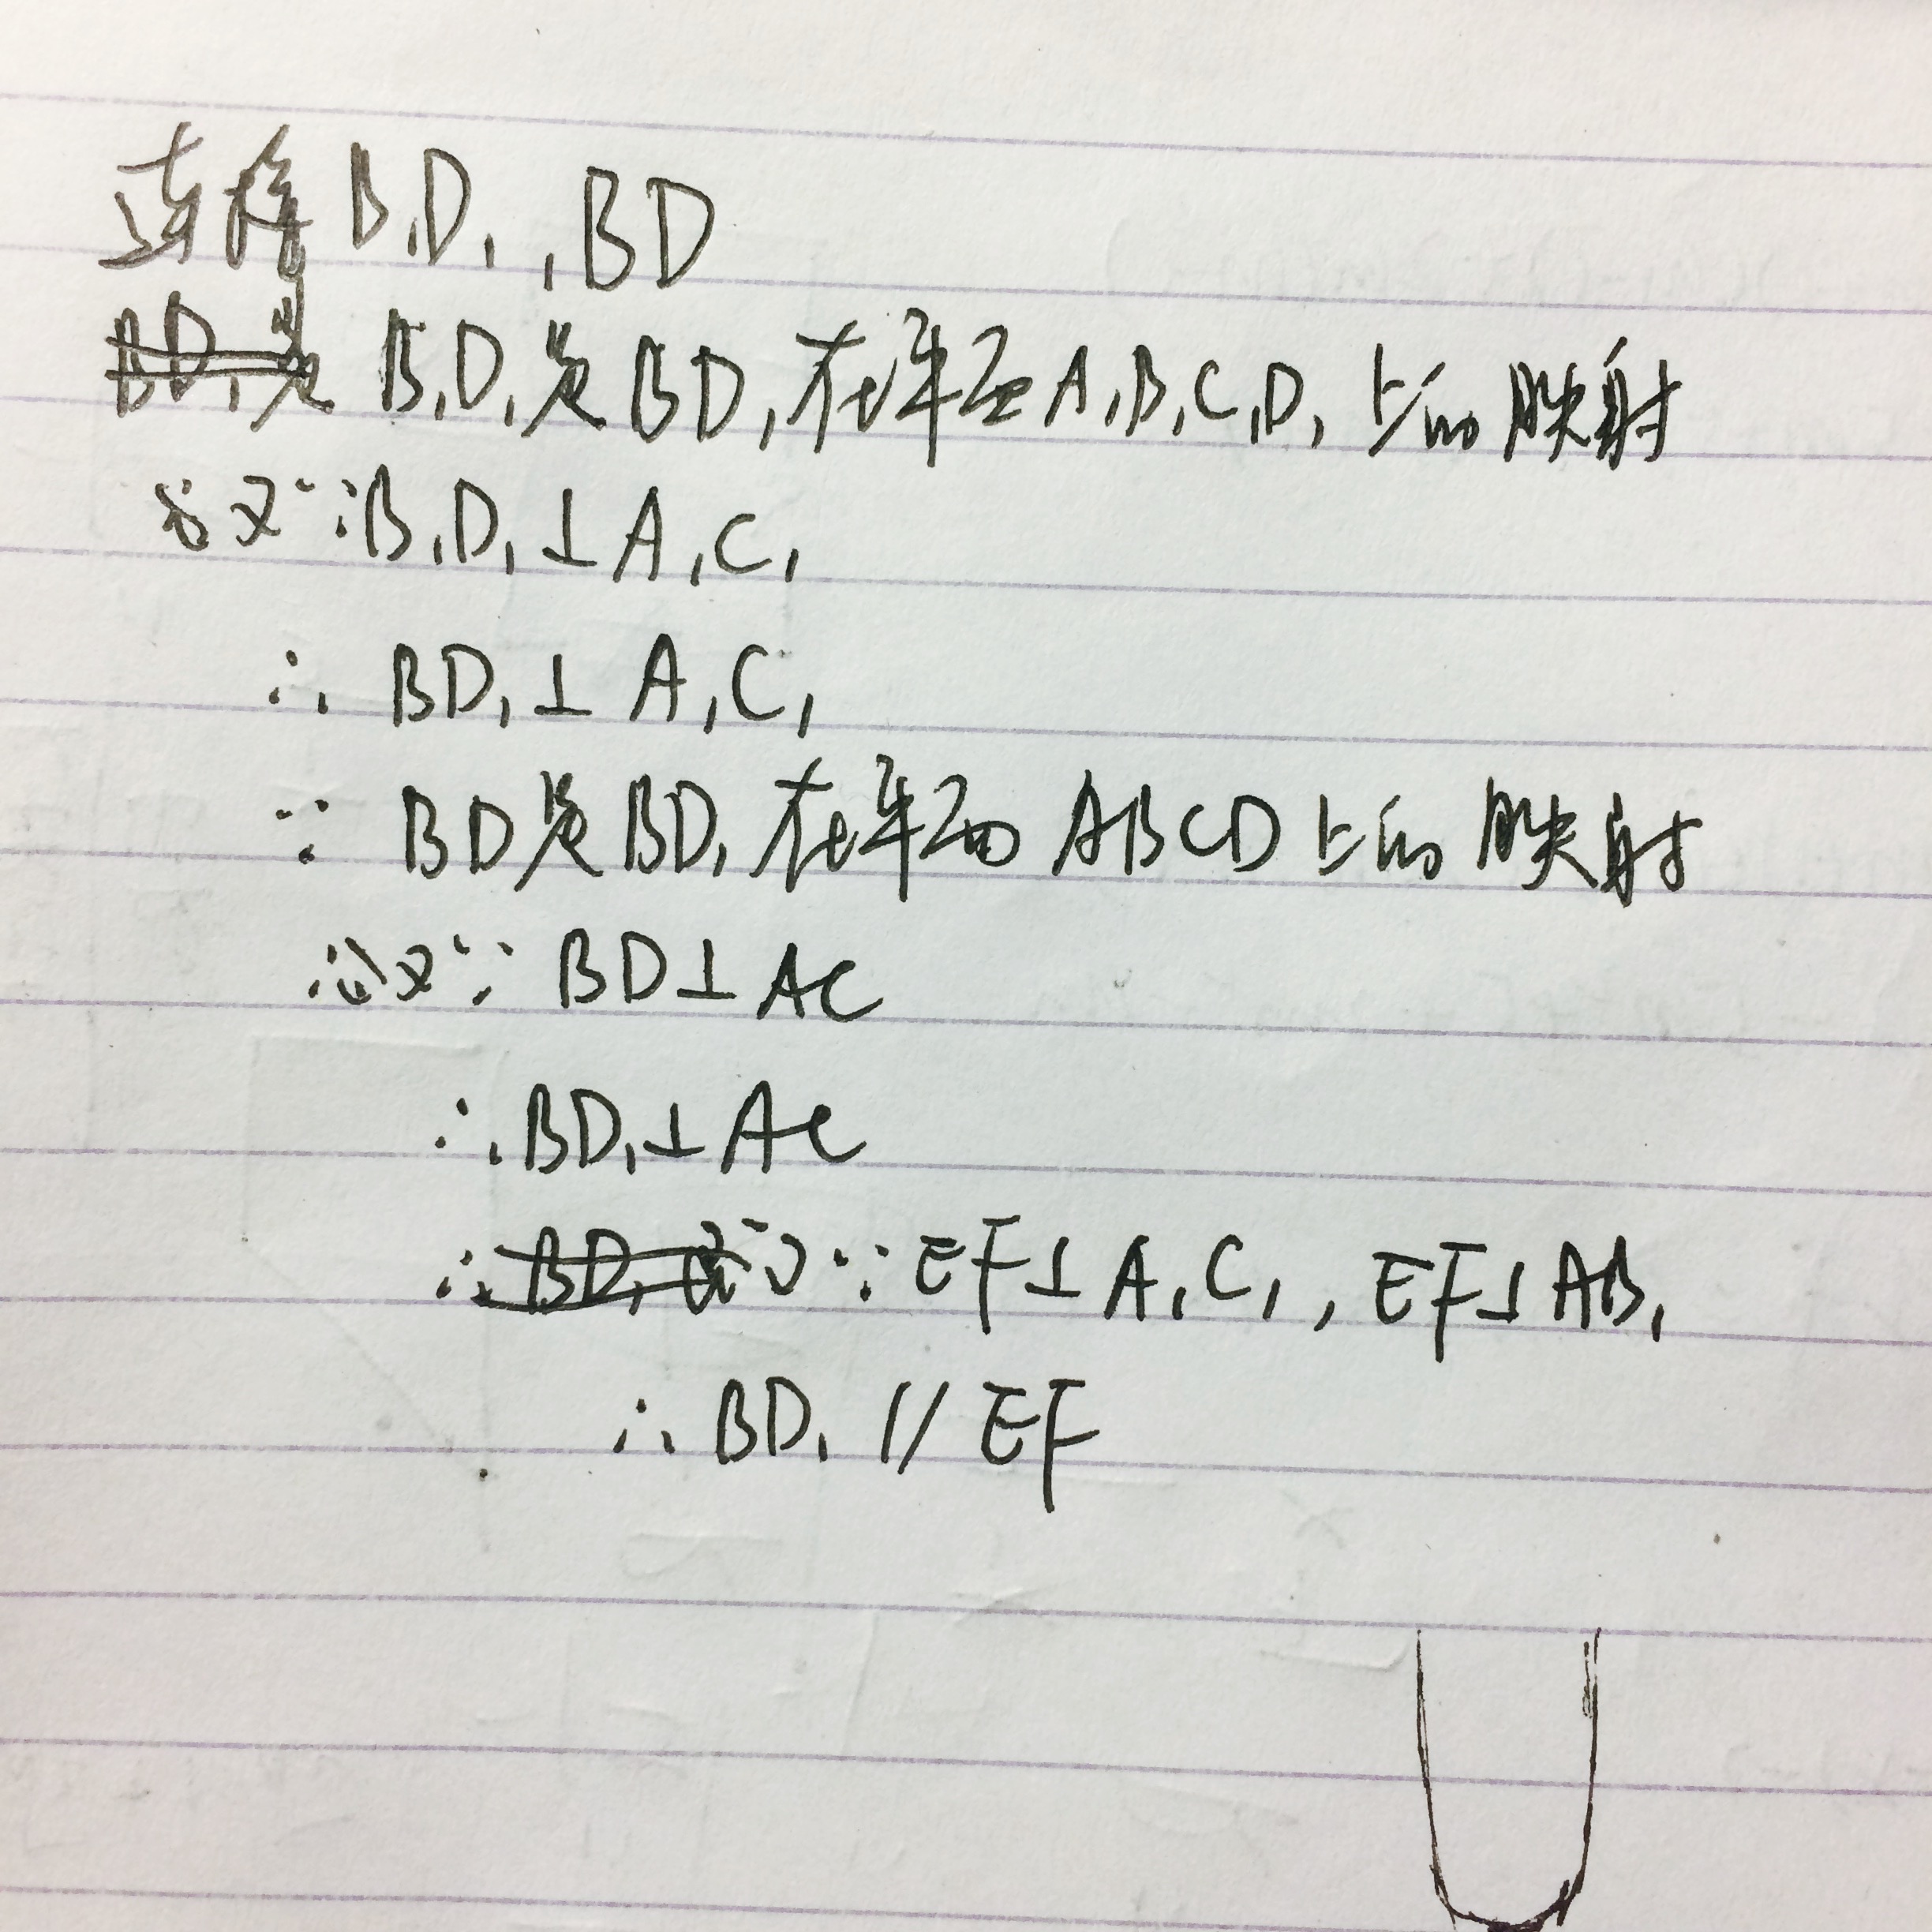 连接B₁D₁,BD
B₁D₁为BD₁在平面A₁B₁C₁D₁上的映射
又∵B₁D₁⊥A₁C₁
∴BD₁⊥A₁C₁
∵BD为BD₁在平面ABCD上的映射
又∵BD⊥AC
∴BD₁⊥AC
∵EF⊥A₁C₁,EF⊥AB₁
∴BD₁//EF